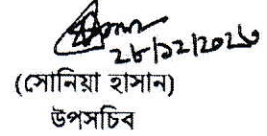 ২৮/১২/২০২০
(সোনিয়া হাসান)
উপসচিব